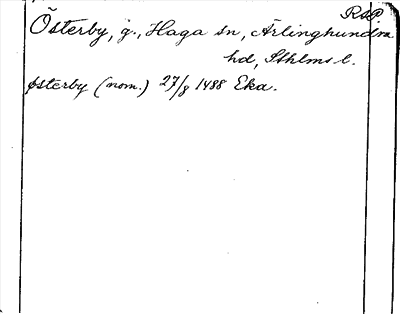 RSP.
Österby, g., Haga sn, Ärlinghundra
hd, Sthlms l.
østerby (nom.) 27/8 1488 Eka.